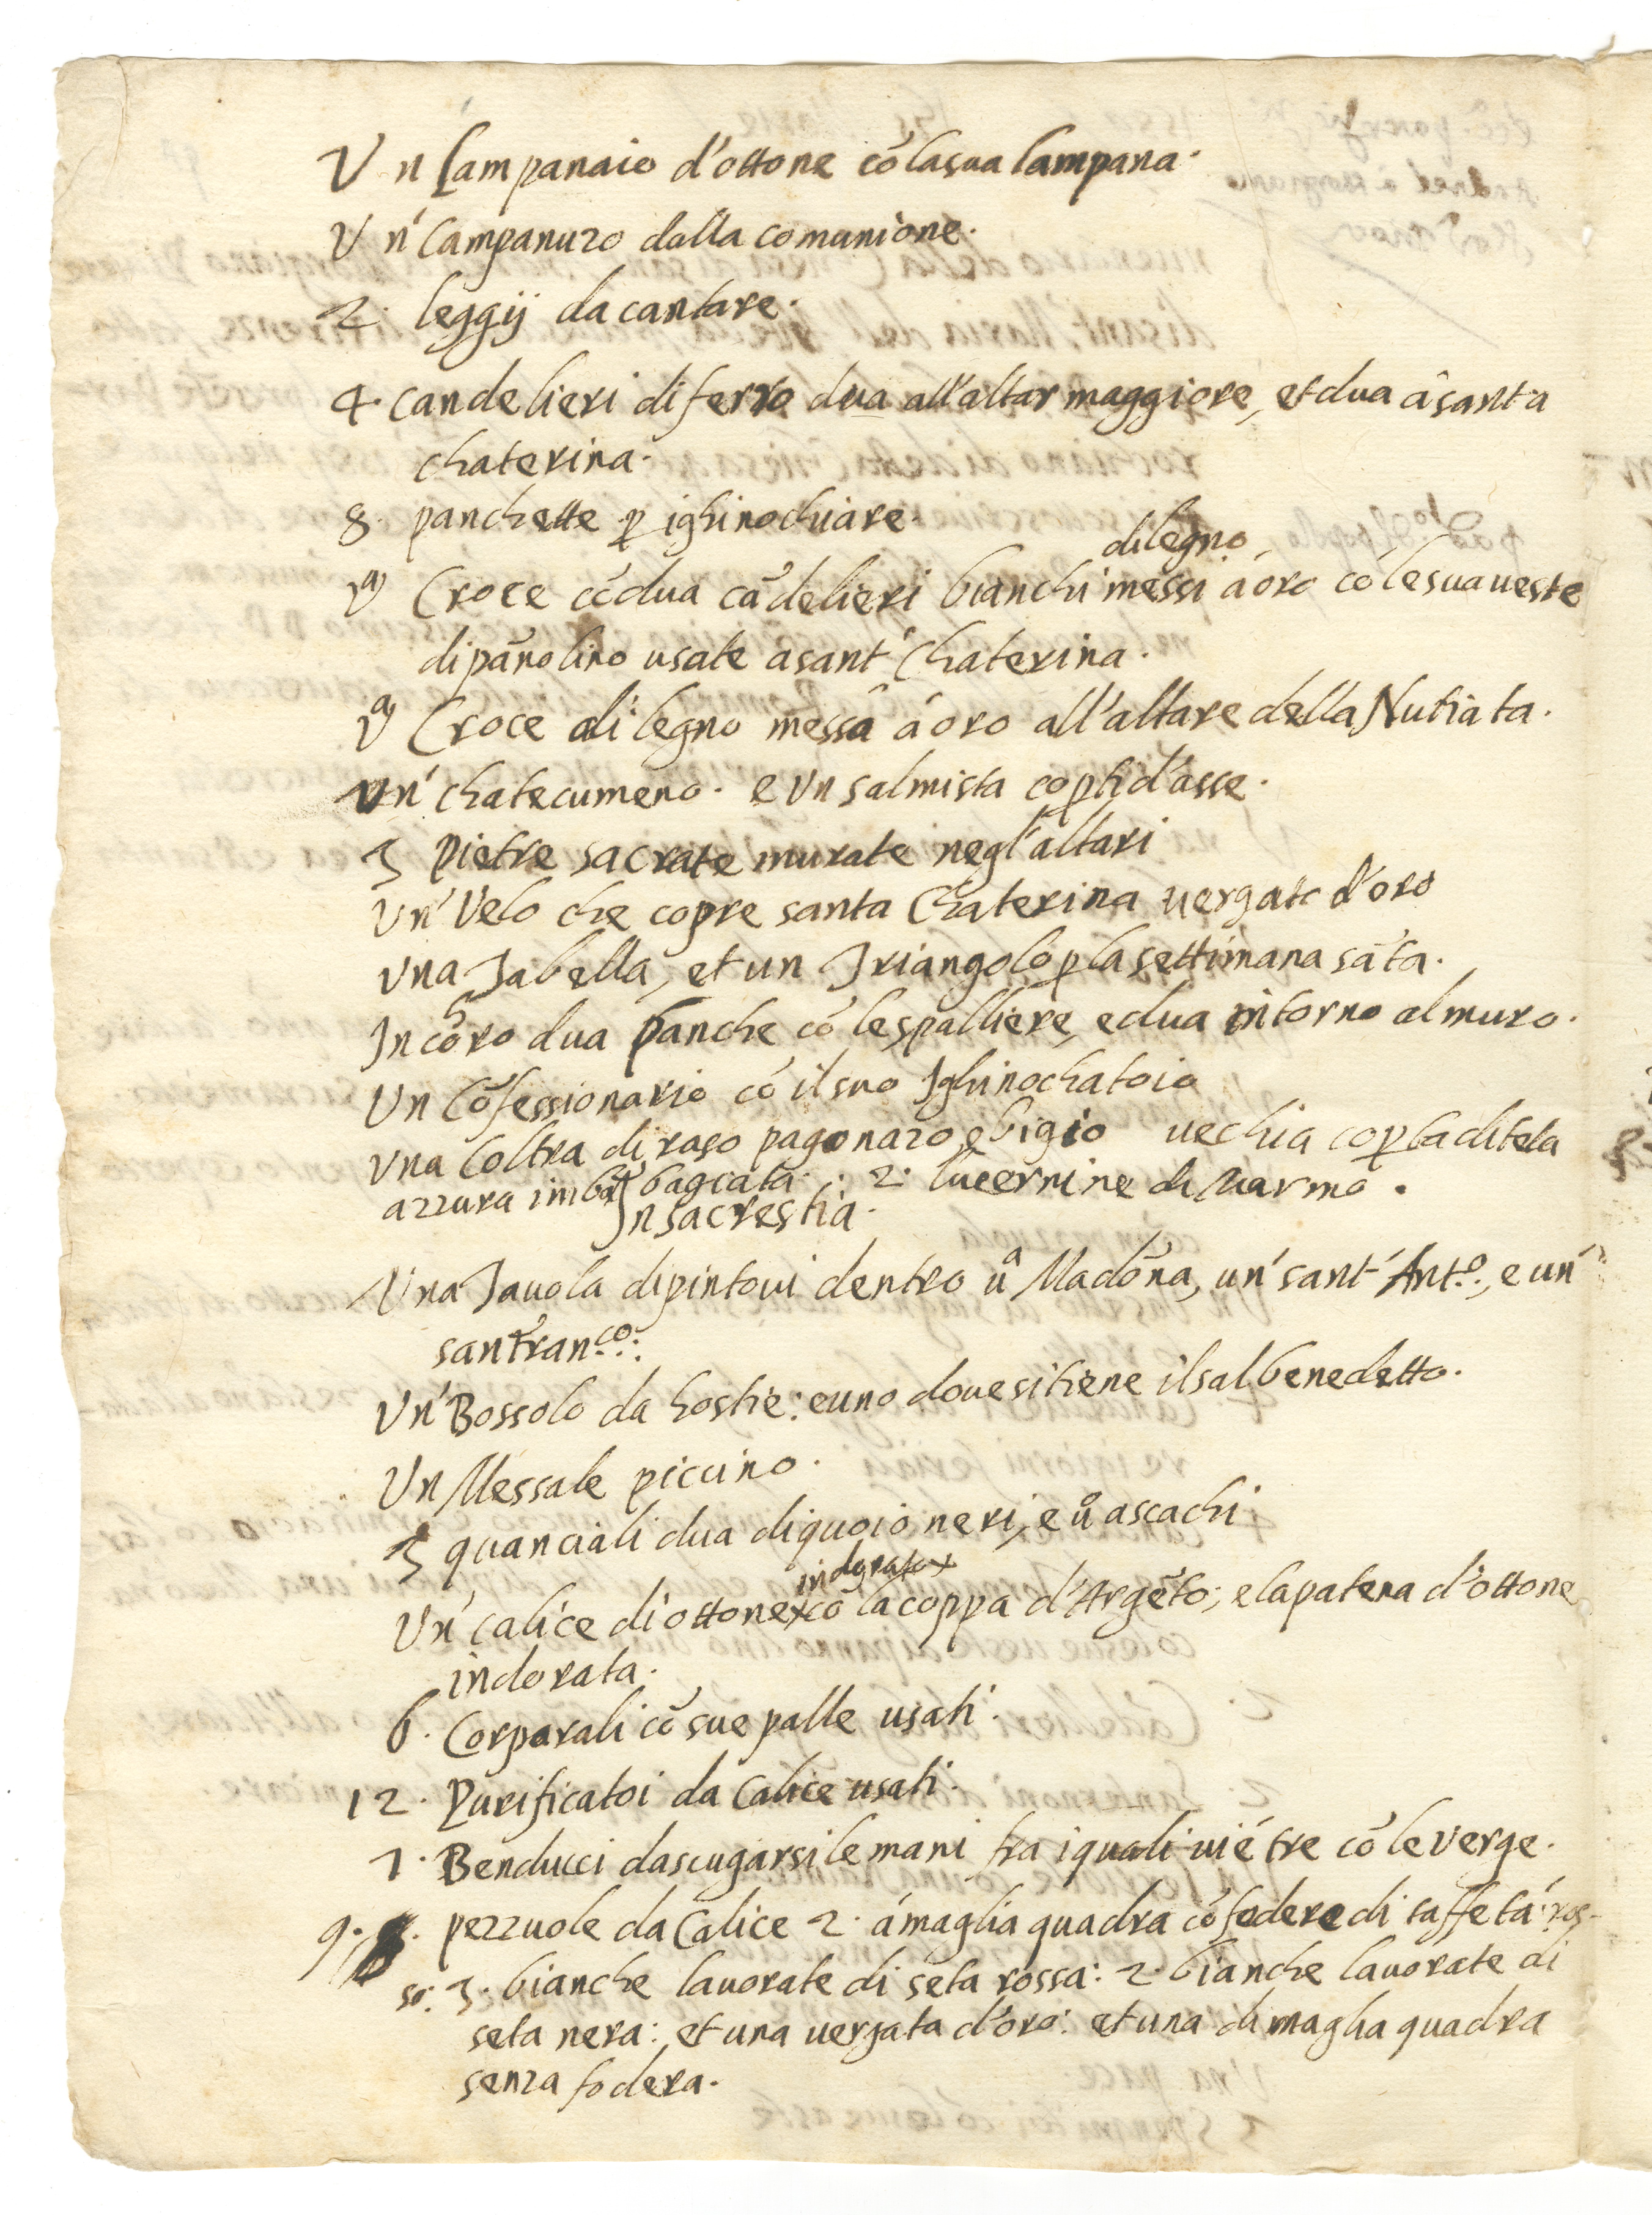 Vn lampanaio d'ottone cō lasua lampana.
Vn' Campanuzo dalla comunione.
2. leggij da cantare.
4. candelieri di ferro dua all'altar maggiore, et dua à santa
chaterina.
8. panchette p ighinochiare.
di legno
vª Croce cō dua cādelieri bianchi messi à oro cō le sua ueste
di pāno lino usate a sant' Chaterina.
vª Croce di legno messa à oro all'altare della Nūtiata.
un' chatecumeno. e un salmista copti d'asse.
3 pietre sacrate murate negl'altari
Un' Velo che copre santa Chaterina uergato d'oro
Una Tabella, et un Triangolo p la settimana sāta.
In choro dua panche cō le spalliere, e dua intorno al muro.
Un Cōfessionario cō il suo Ighinochatoio
Una Coltra di raso pagonazo e bigio uechia copta di tela
azzura imbābagiata. : 2. lucernine di Marmo.
In sacrestia.
Vna Tauola dipintoui dentro uª Madōna, un' sant' Antº., e un'
san franco:
Un' Bossolo da hostie: e uno doue si tiene il sal benedetto.
Un Messale piccino.
3 guanciali dua di quoio neri, e uº a scachi
indorato
Un' calice di ottone x cō la coppa d'Argēto; e la patena d'ottone
indorata.
6. Corporali cō sue palle usati.
12. Purificatoi da Calice usati.
7. Benducci dascugarsi le mani fra i quali ui é tre cō le verge.
9. pezzuole da Calice 2. á maglia quadra cō federe di taffetá ros-
so: 3. bianche lauorate di seta rossa: 2. bianche lauorate di
seta nera: et una uergata d'oro: et una di maglia quadra
senza fodera.